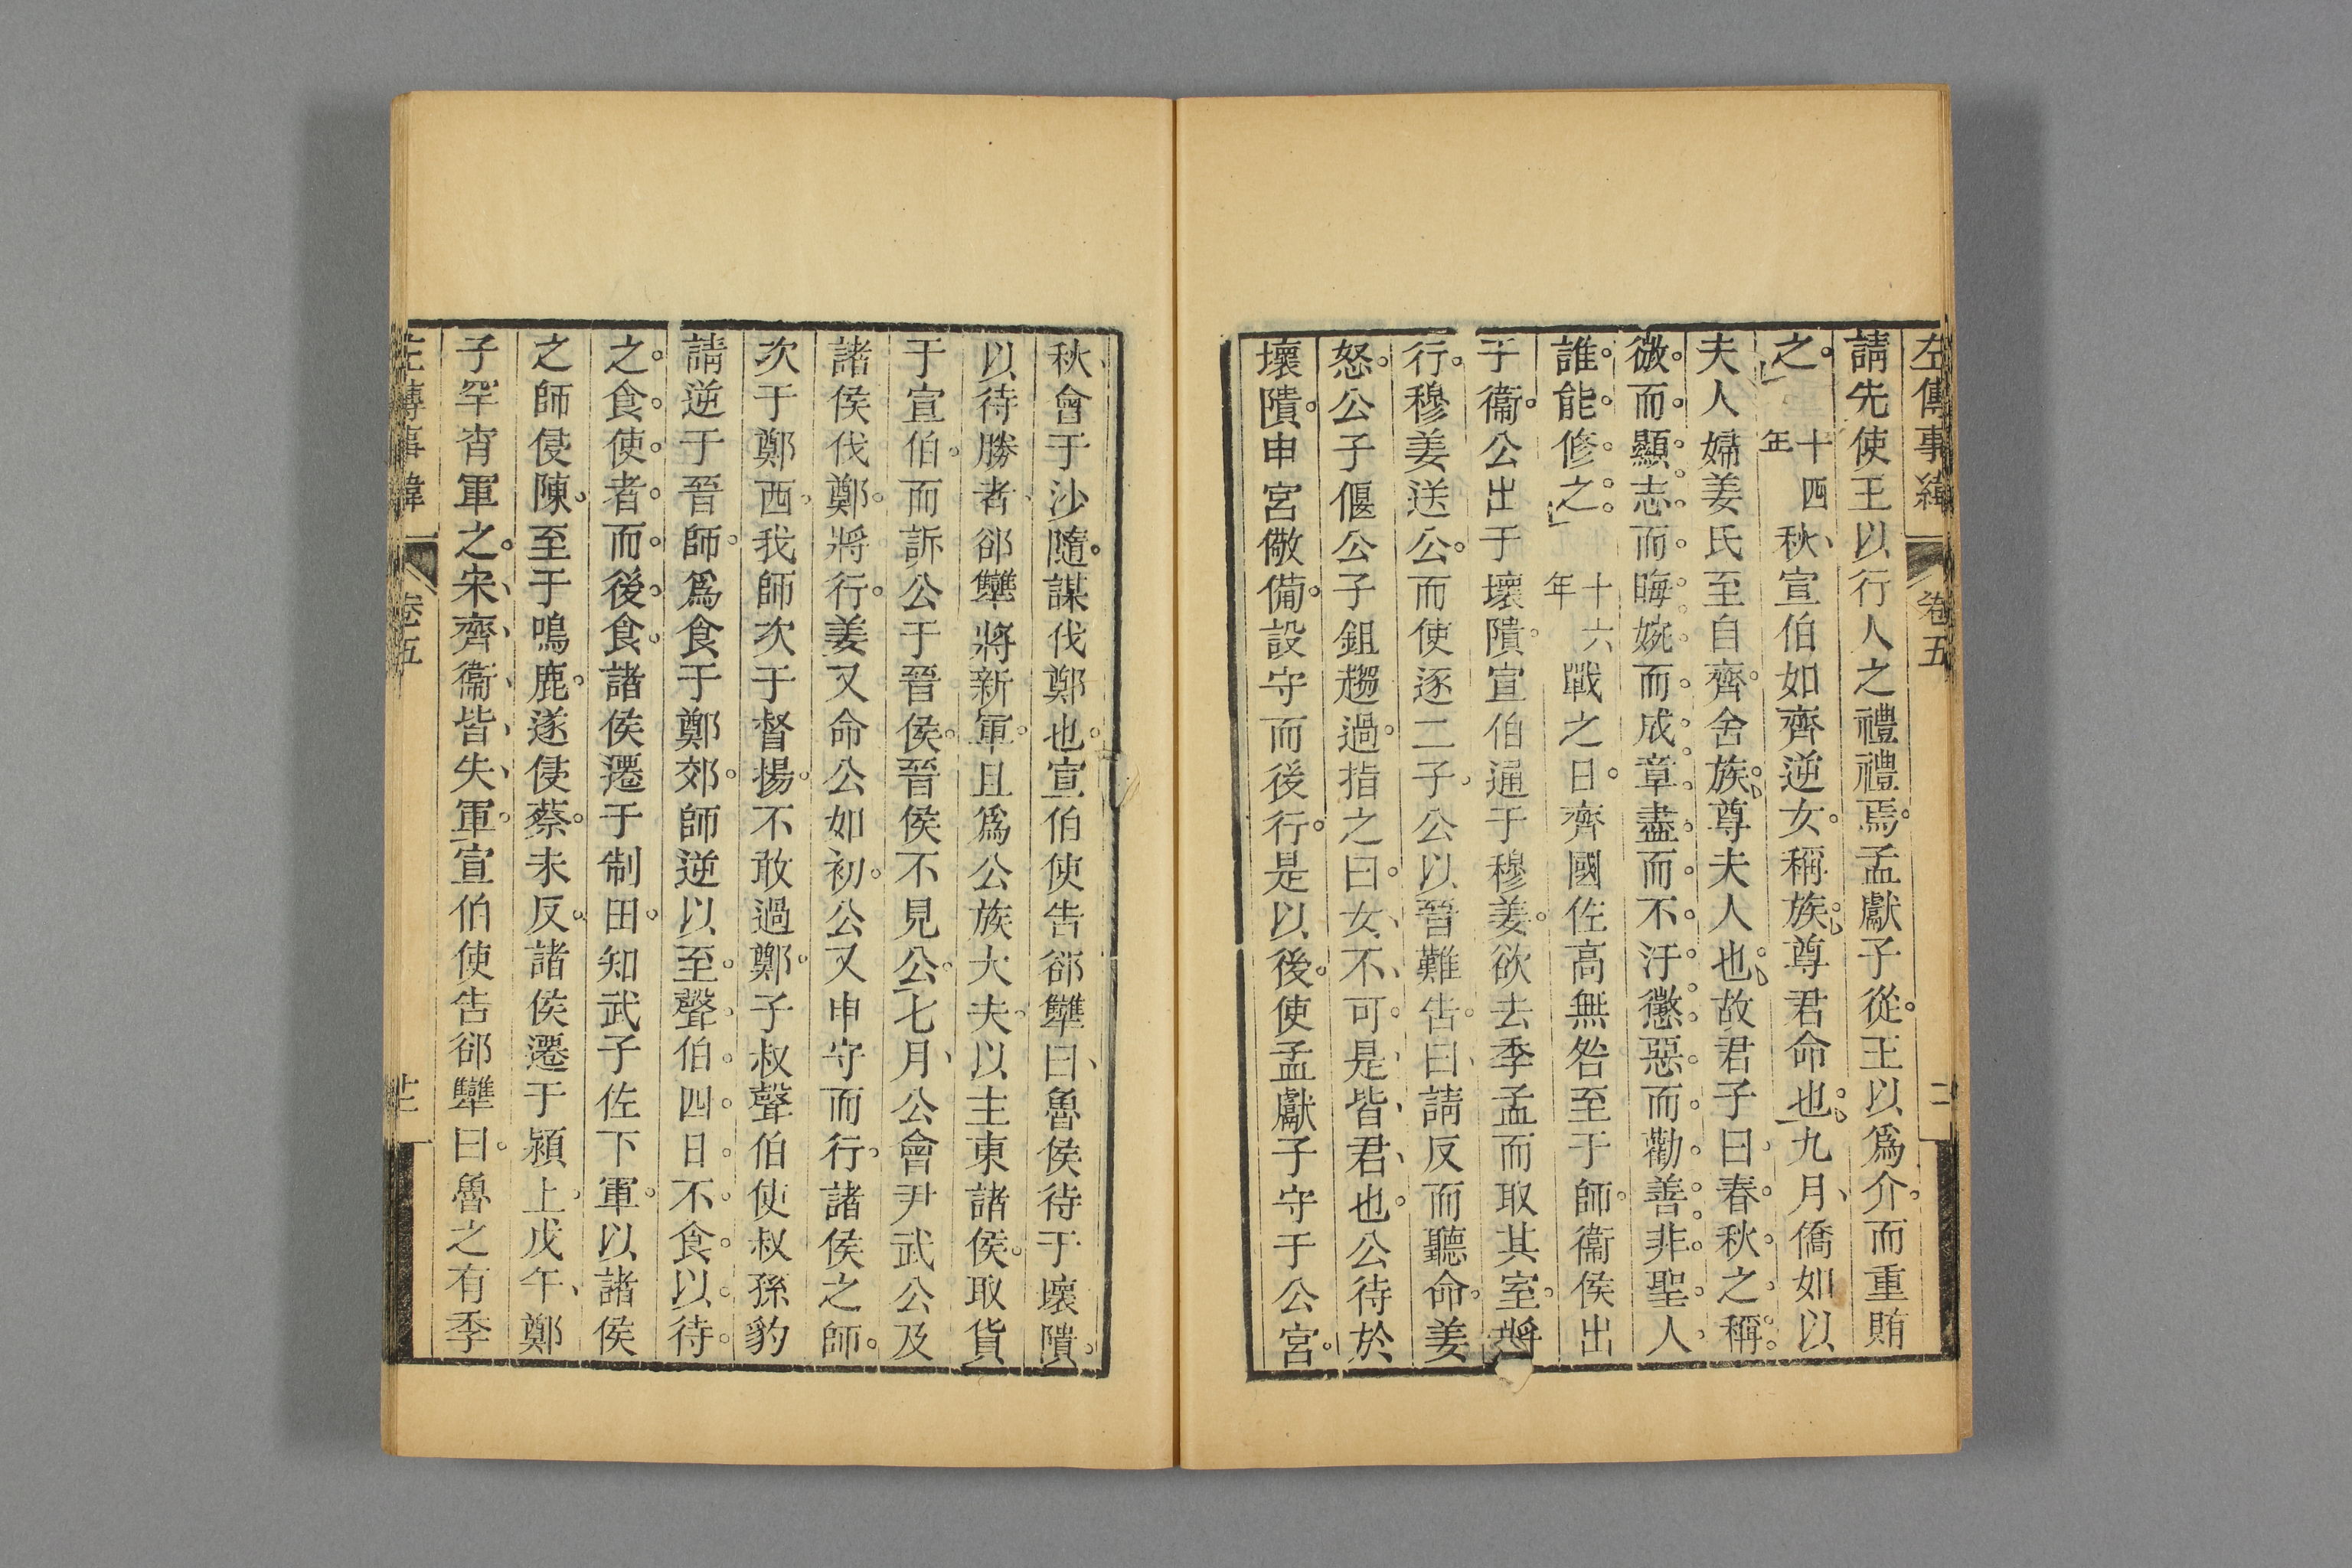 左傳事緯 卷五
請先使王以行人之禮禮焉孟獻子從王以爲介而重賄
之十四年秋宣伯如齊逆女稱族尊君命也九月僑如以
夫人婦姜氏至自齊舍族尊夫人也故君子曰春秋之稱
微而顯志而晦婉而成章盡而不汙懲惡而勸善非聖人
誰能修之十六年戰之日齊國佐高無咎至于師衞侯出
于衞公出于壞隤宣伯通于穆姜欲去季孟而取其室將
行穆姜送公而使逐二子公以晉難告曰請反而聽命姜
怒公子偃公子鉏趨過指之曰女不可是皆君也公待於
壞隤申宮儆備設守而後行是以後使孟獻子守于公宮
秋會于沙隨謀伐鄭也宣伯使告郤犫曰魯侯待于壞隤
以待勝者郤犫將新軍且爲公族大夫以主東諸侯取貨
于宣伯而訴公于晉侯晉侯不見公七月公會尹武公及
諸侯伐鄭將行姜又命公如初公又申守而行諸侯之師
次于鄭西我師次于督揚不敢過鄭子叔聲伯使叔孫豹
請逆于晉師爲食于鄭郊師逆以至聲伯四日不食以待
之食使者而後食諸侯遷于制田知武子佐下軍以諸侯
之師侵陳至于鳴鹿遂侵蔡未反諸侯遷于潁上戊午鄭
子罕宵軍之宋齊衞皆失軍宣伯使告郤犫曰魯之有季
左傳事緯 卷五